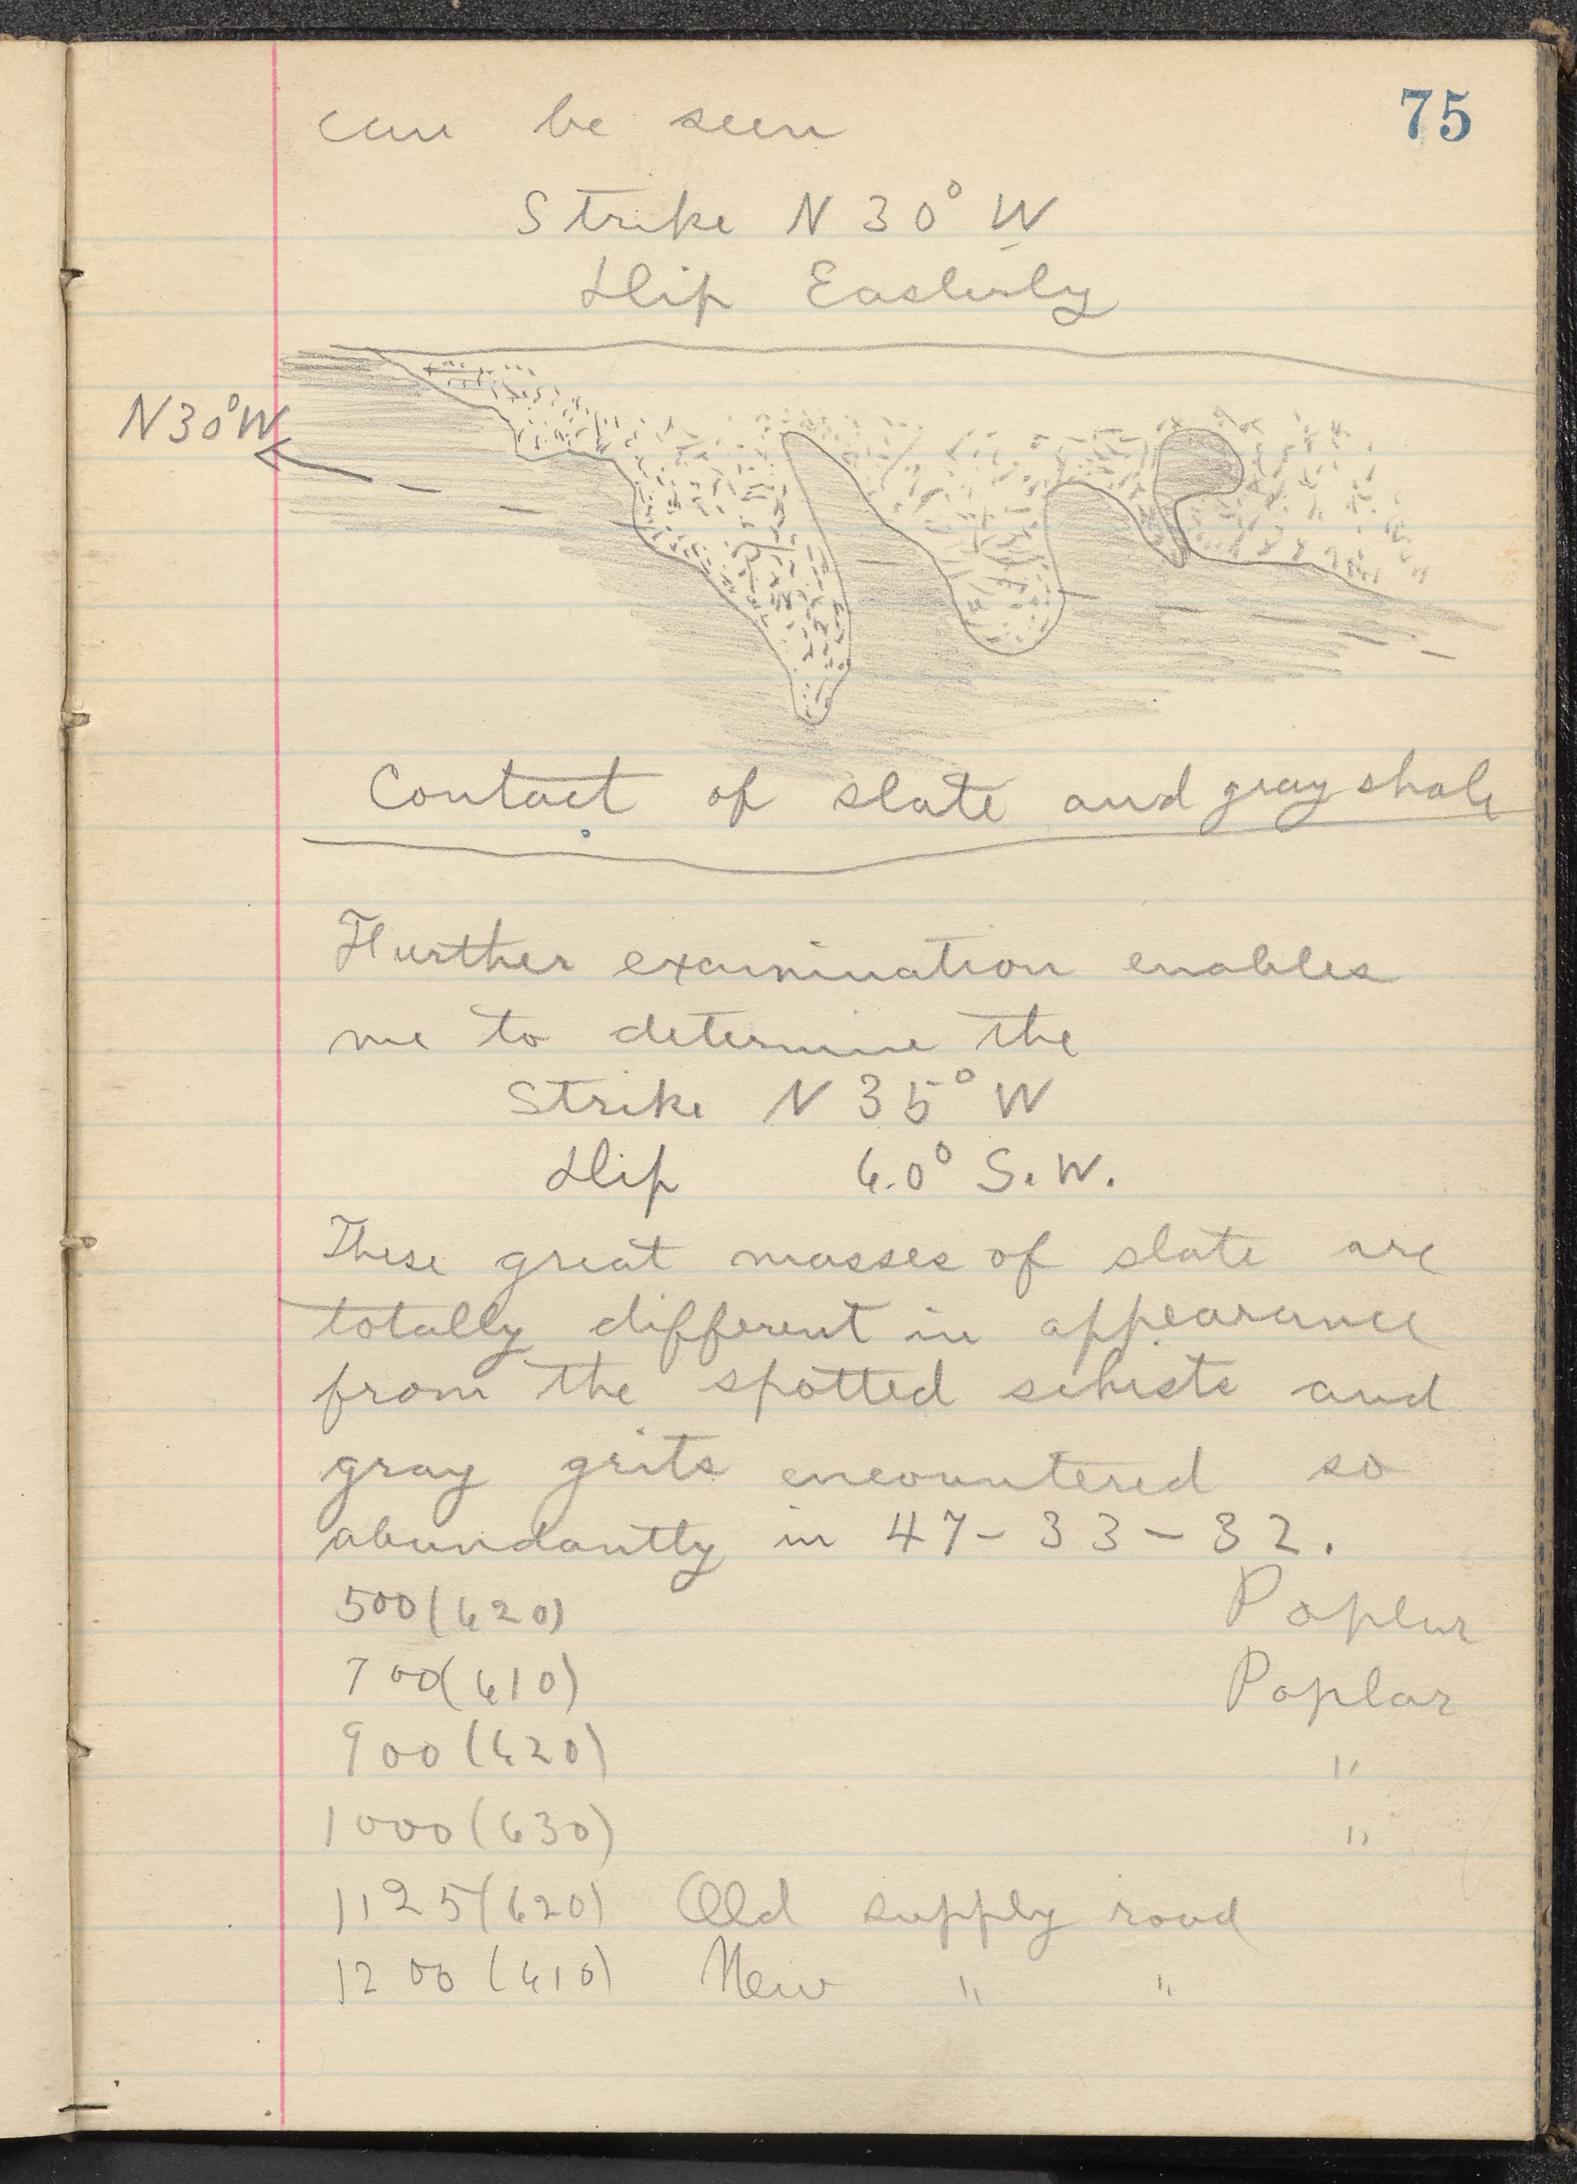 75
can be seen
Strike N 30° W
Dip Easterly
N30°W
Contact of slate and gray shale
Further examination enables
me to determine the
Strike N 35° W
Dip 60° S.W.
These great masses of slate are
totally different in appearance
from the spotted schists and
gray grits encountered so
abundantly in 47-33-32.
500(620) Poplar
700(610) Poplar
900(620) "
1000(630) "
1125(620) Old supply road
1200(610) New " "